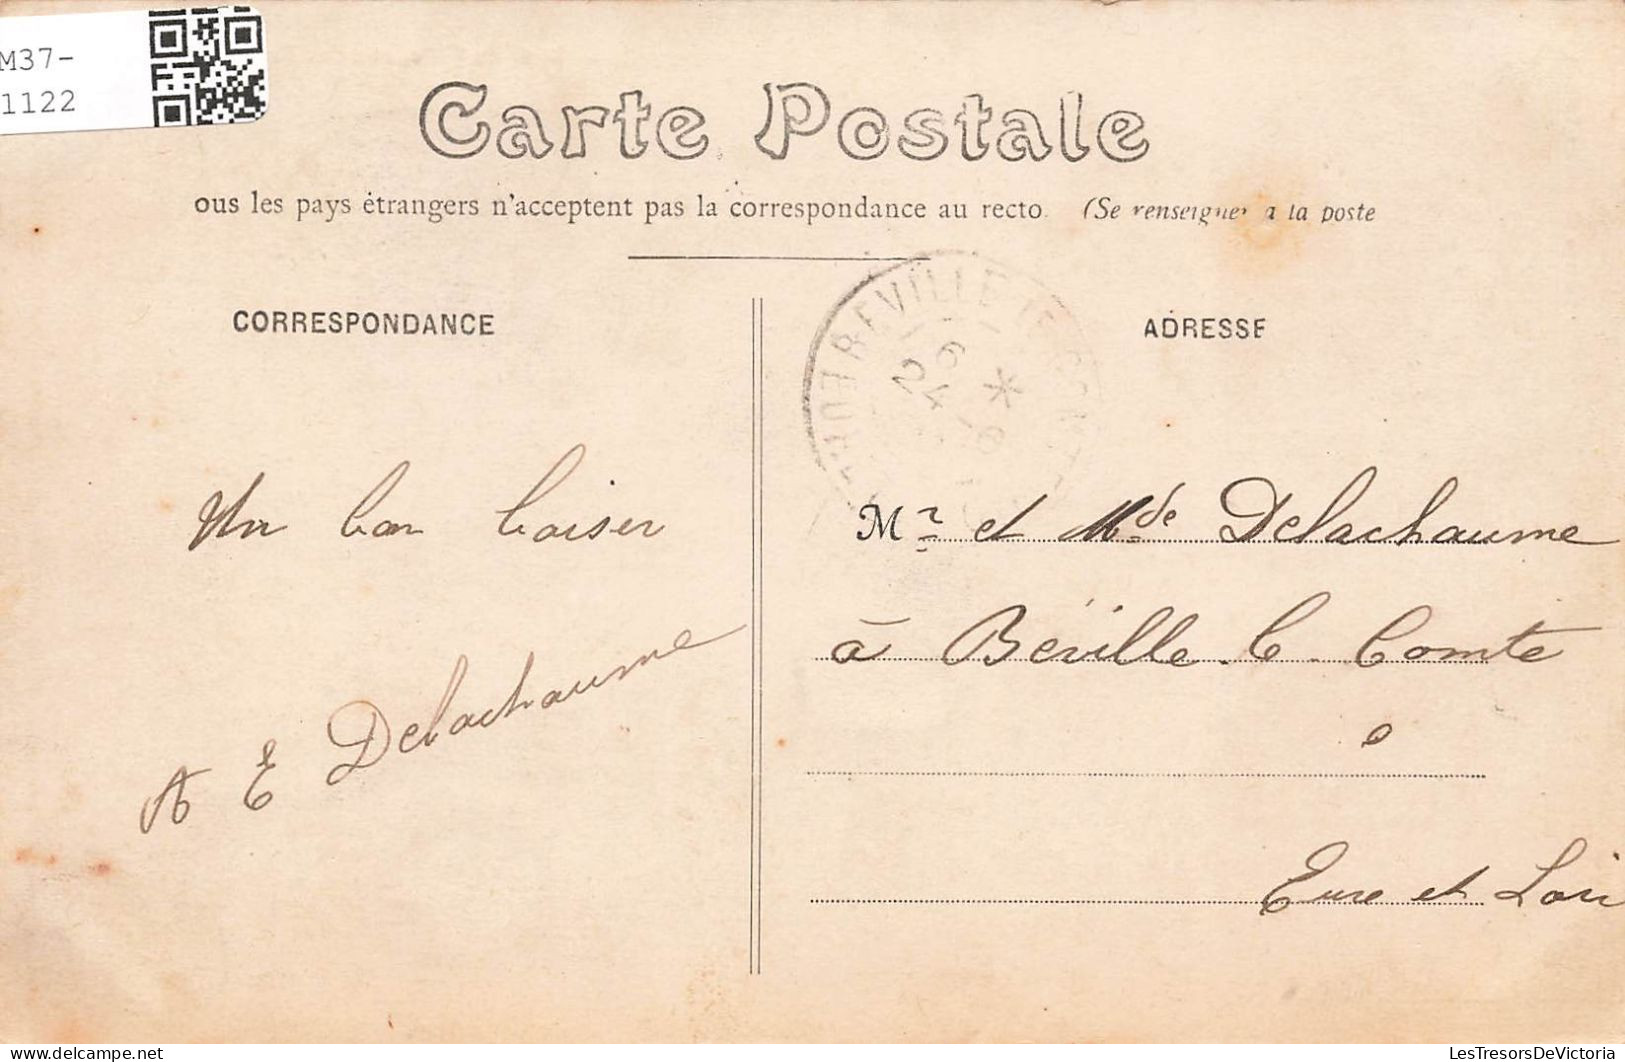 M37-
1122
Carte Postale
ous les pays étrangers n'acceptent pas la correspondance au recto. (Se renseigner a la poste
CORRESPONDANCE
ADRESSE
BEVILLE LE COMTE
24 - 6
Un bon baiser
A E Delachaume
Mr et Mde Delachaume
à Béville. C. Comte
Eure et Loir
LesTresorsDeVictoria
delcampe.net